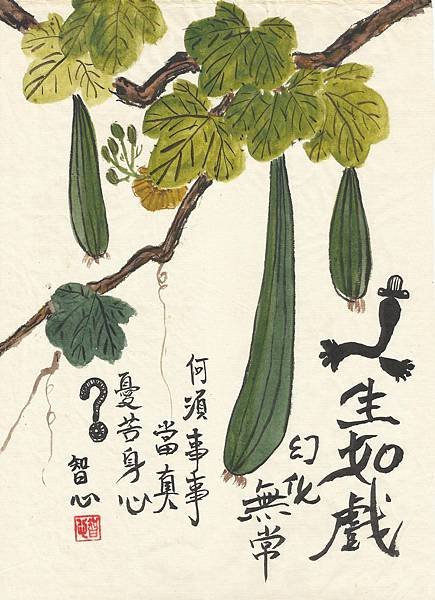 人生如戲
幻化
無常
何須事事
當真
憂苦身心
？
智心
智心